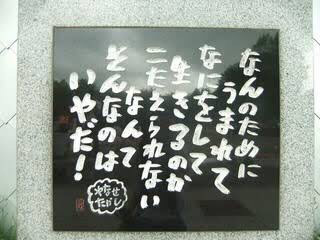 なんのために
うまれて
なにをして
生きるのか
こたえられない
なんて
そんなのは
いやだ！
やなせ
たかし